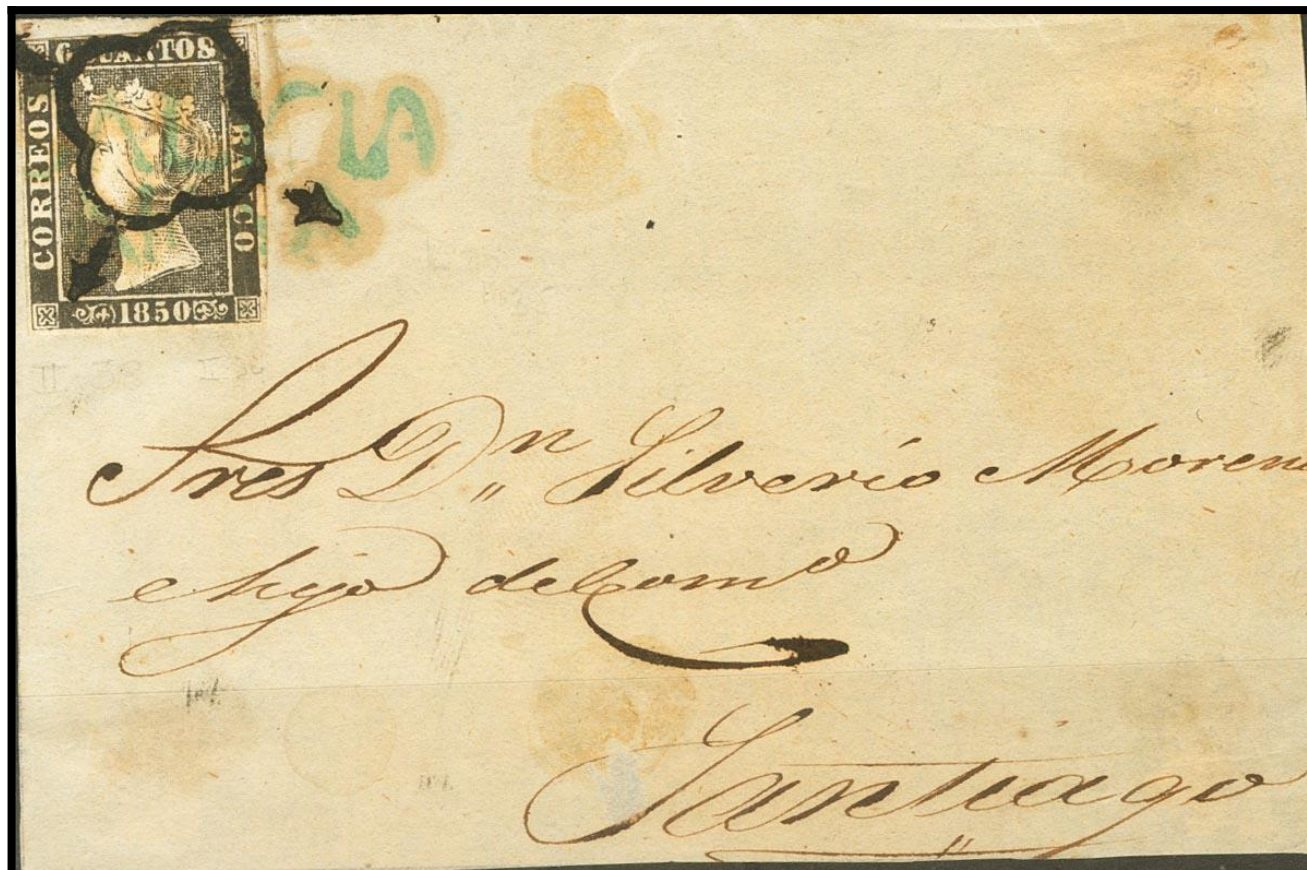 6 CUARTOS
CORREOS
BANCO
1850
CIA
II 38
Sres Dn Silverio Moreno
e hijo del Como
Santiago